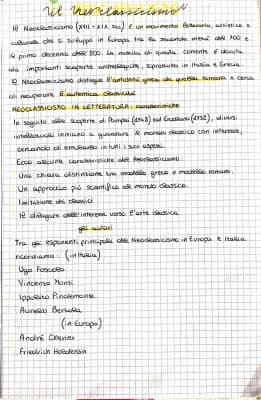 Il Neoclassicismo
Il Neoclassicismo (XVIII - XIX sec.) è un movimento letterario, artistico e
culturale che si sviluppa in Europa tra la seconda metà del '700 e
il primo decennio dell'800. La nascita di questa corrente è dovuta
da importanti scoperte archeologiche, soprattutto in Italia e Grecia.
Il Neoclassicismo distingue l'antichità greca da quella romana e cerca
di recuperare l'autentica classicità
NEOCLASSICISMO IN LETTERATURA: caratteristiche
In seguito alle scoperte di Pompei (1748) ed Ercolano (1738), diversi
intellettuali iniziano a guardare il mondo classico con interesse,
cercando di emularlo in tutti i suoi aspetti.
Ecco alcune caratteristiche del Neoclassicismo:
Una chiara distinzione tra modello greco e modello romano.
Un approccio più scientifico al mondo classico.
Imitazione dei classici
Il dilagare dell'interesse verso l'arte classica.
gli autori
Tra gli esponenti principali del Neoclassicismo in Europa e Italia
ricordiamo: (in Italia)
Ugo Foscolo
Vincenzo Monti
Ippolito Pindemonte
Aurelio Bertola
(in Europa)
André Chénier
Friedrich Hölderlin